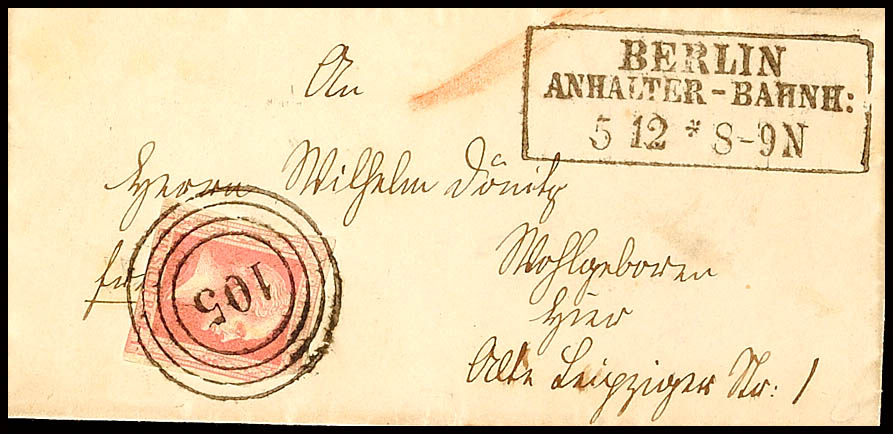 BERLIN
ANHALTER-BAHNH:
5 12 * 8-9N
An
Herrn Wilhelm Dönitz
fr
105
Wohlgeboren
Hier
Alte Leipziger Str: 1